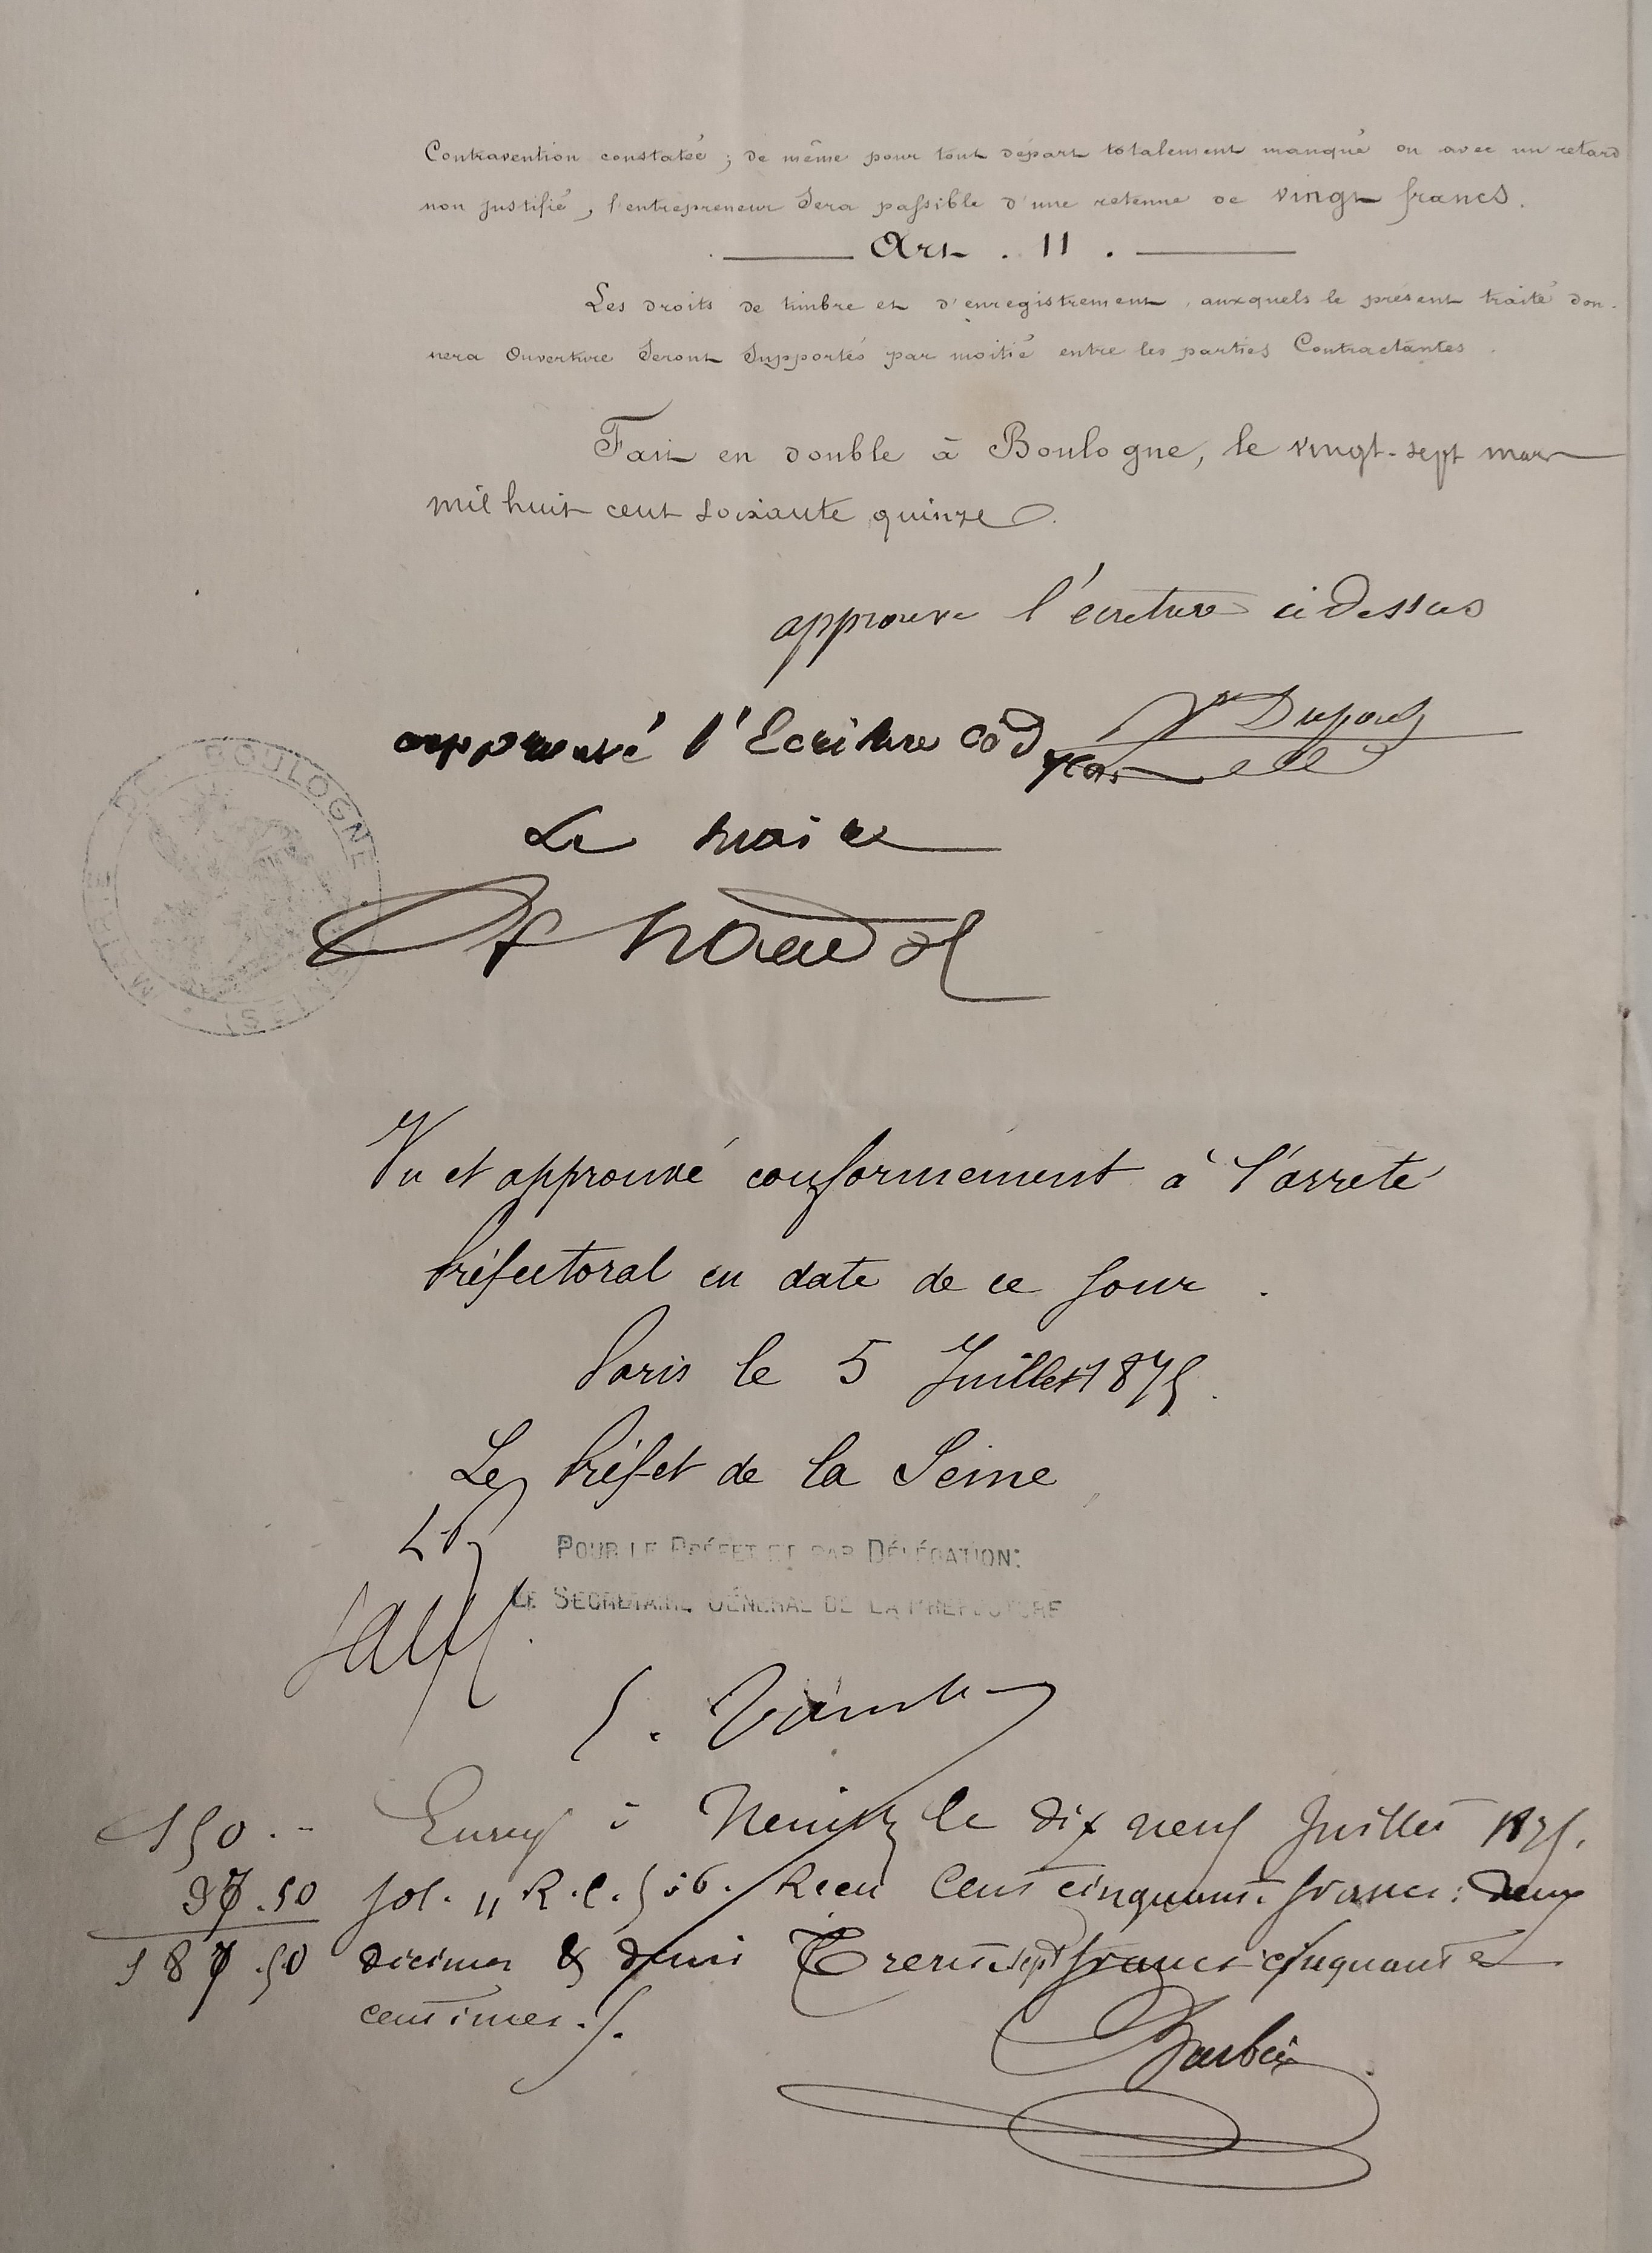 Contravention constatée ; de même pour tout départ totalement manqué ou avec un retard
non justifié, l'entrepreneur sera passible d'une retenue de vingt francs.
Art. 11.
Les droits de timbre et d'enregistrement, auxquels le présent traité don-
nera Ouverture seront supportés par moitié entre les parties Contractantes.
Fait en double à Boulogne, le vingt-sept mars
mil huit cent soixante quinze.
approuve l'écriture ci dessus
Dupont
approuvé l'Ecriture
Le Maire
MAIRIE DE BOULOGNE (SEINE)
Vu et approuvé conformément à l'arrêté
Préfectoral en date de ce jour.
Paris le 5 Juillet 1875.
Le Préfet de la Seine
POUR LE PRÉFET ET PAR DÉLÉGATION:
LE SECRÉTAIRE GÉNÉRAL DE LA PRÉFECTURE
150.--
37.50
187.50
Enreg à Neuilly le dix neuf Juillet 1875.
fol. 11 R. C. 5 Recu Cent cinquante francs: deux
décimes & demi Trente sept francs cinquante
centimes.
Barbier